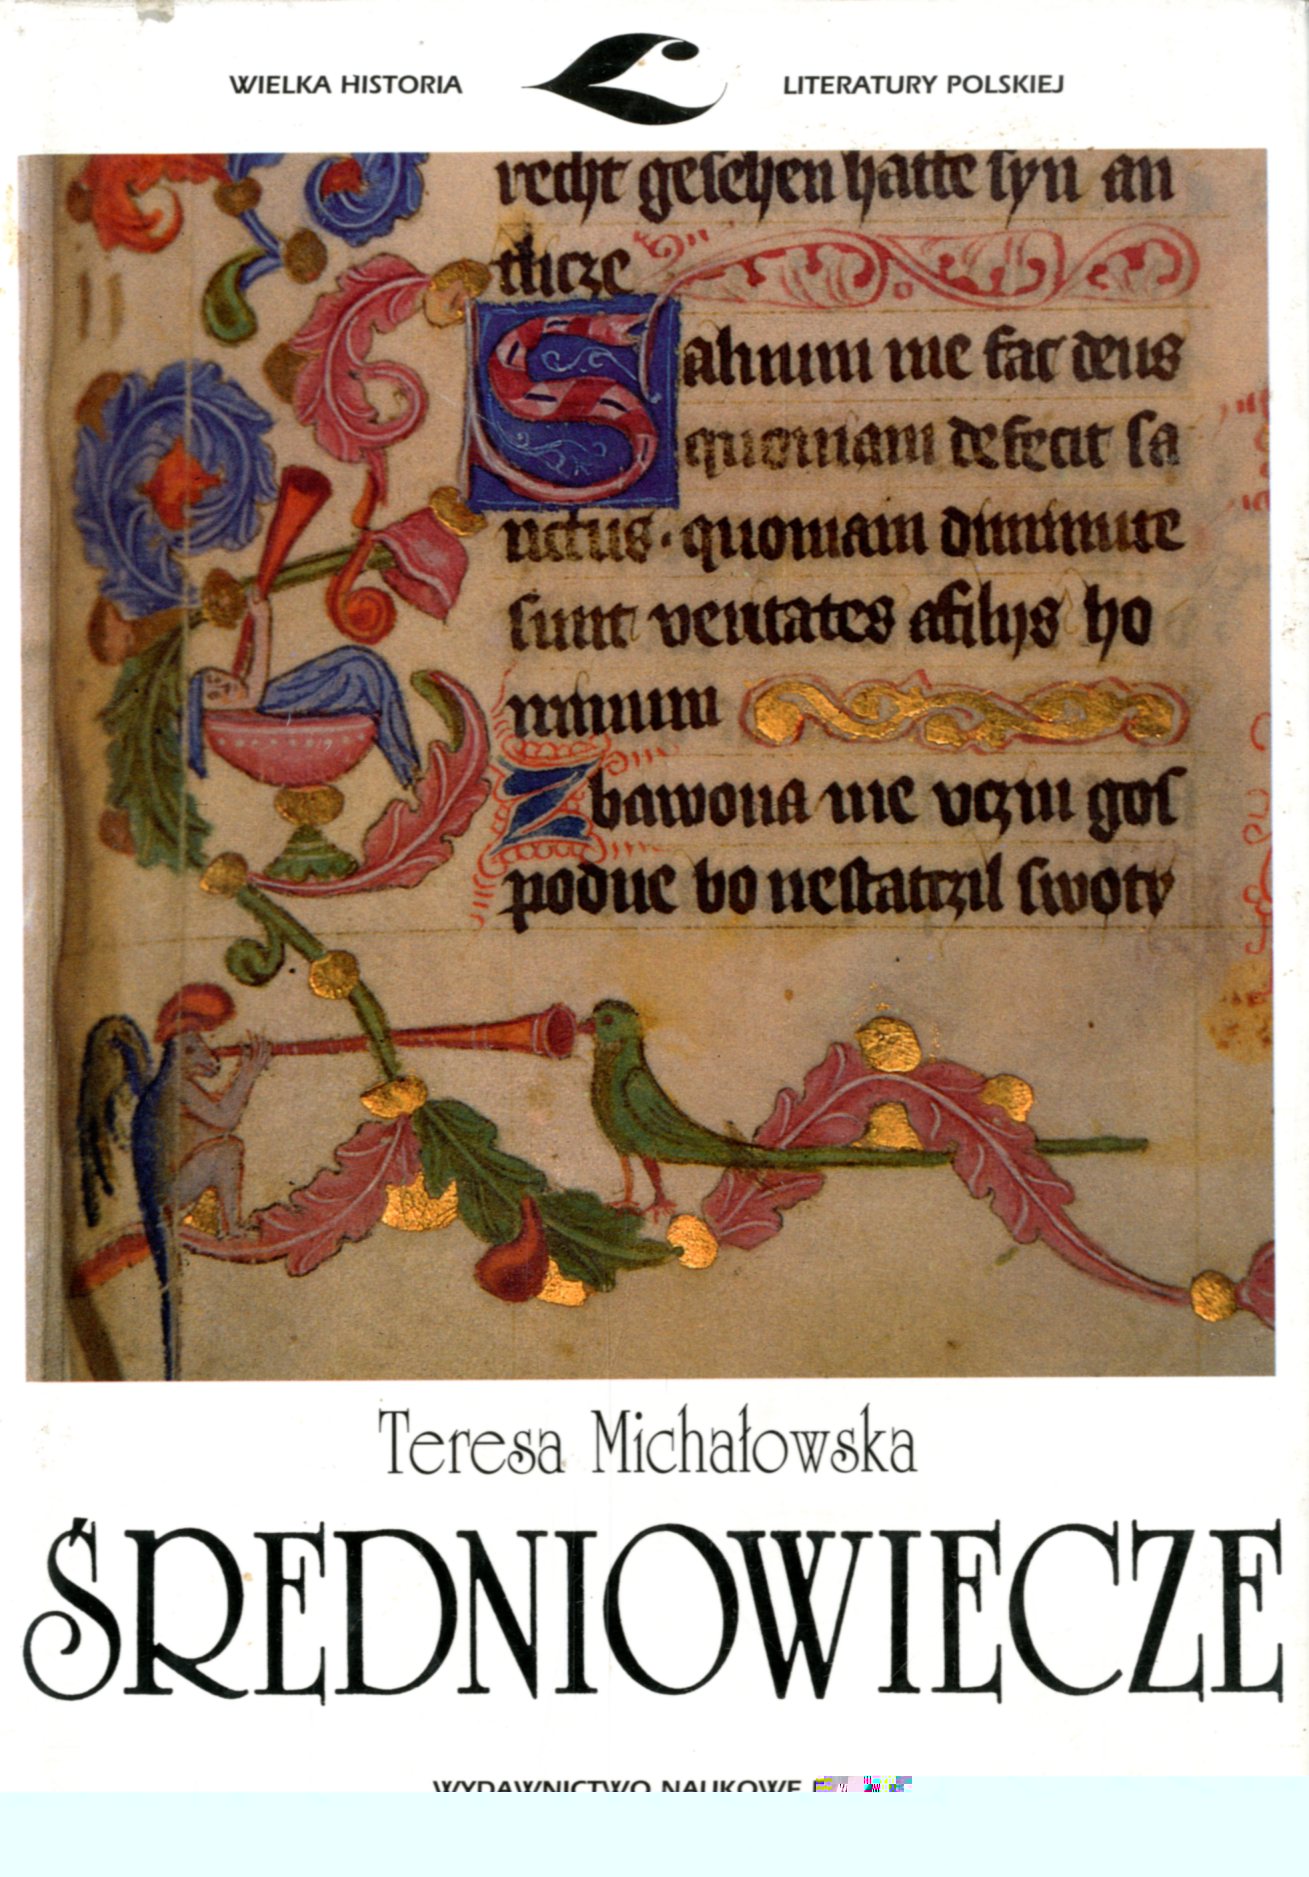 WIELKA HISTORIA LITERATURY POLSKIEJ
recht gesehen hatte syn an
tlicze
Saluum me fac deus
quoniam defecit sa
nctus · quoniam diminute
sunt veritates afilijs ho
minum
Zbawona me vczin gos
podne bo nestatczil swøti
Teresa Michałowska
ŚREDNIOWIECZE
WYDAWNICTWO NAUKOWE